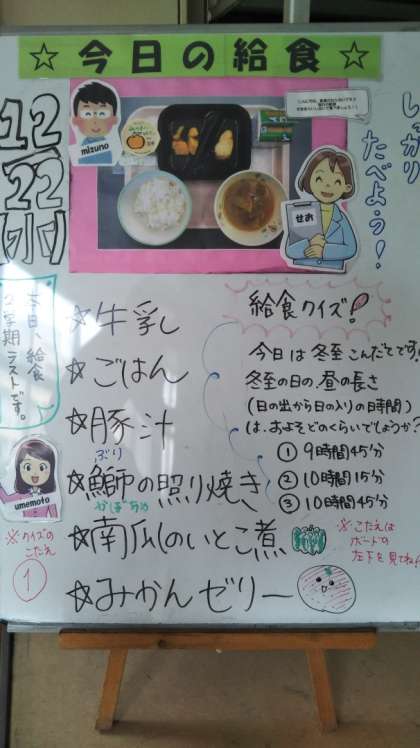 ☆今日の給食☆
12/22(水)
mizuno
せお
しっかり
たべよう!
本日、給食
2学期ラストです。
umemoto
※クイズの
こたえ
①
☆牛乳
☆ごはん
☆豚汁
ぶり
☆鰤師の照り焼き
かぼちゃ
☆南瓜のいとこ煮
☆みかんゼリー
給食クイズ!
今日は冬至こんだてです!
冬至の日の、昼の長さ
(日の出から日の入りの時間)
は、およそどのくらいでしょうか?
① 9時間45分
② 10時間15分
③ 10時間45分
※こたえは
ボードの
左下を見てね